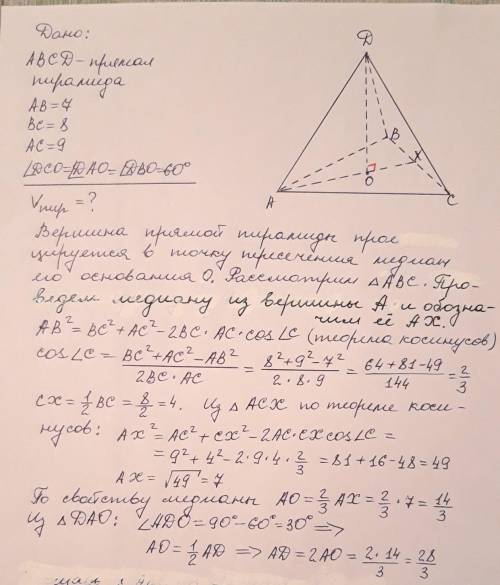 Дано:
ABCD - прямая
пирамида
AB = 7
BC = 8
AC = 9
∠DCO = ∠DAO = ∠DBO = 60°
Vпир = ?
D
B
X
O
A
C
Вершина прямой пирамиды прое
цируется в точку пересечения медиан
его основания O. Рассмотрим △ABC. Про-
ведем медиану из вершины A и обозна-
чим её AX.
AB² = BC² + AC² - 2BC · AC · cos∠C (теорема косинусов)
cos∠C = (BC² + AC² - AB²)/(2BC · AC) = (8² + 9² - 7²)/(2 · 8 · 9) = (64 + 81 - 49)/144 = 2/3
CX = 1/2 BC = 8/2 = 4. Из △ACX по теореме коси-
нусов: AX² = AC² + CX² - 2AC · CX cos∠C =
= 9² + 4² - 2 · 9 · 4 · 2/3 = 81 + 16 - 48 = 49
AX = √49 = 7
По свойству медианы AO = 2/3 AX = 2/3 · 7 = 14/3
Из △DAO: ∠ADO = 90° - 60° = 30° ⟹
AO = 1/2 AD ⟹ AD = 2AO = (2 · 14)/3 = 28/3